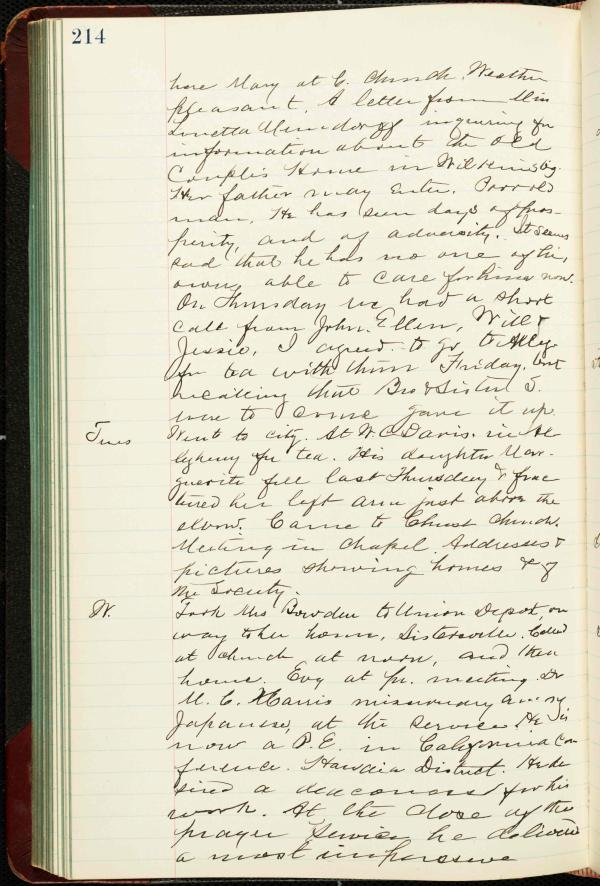 214
here Mary at C. Church. Weather
pleasant. A letter from Miss
inquiring for
information about the old
Couples Home in Wilkinsbg.
Her father may enter. Poor old
man. He has seen days of pros-
perity, and of adversity. It seems
sad that he has no one of his
own able to care for him now.
On Thursday we had a short
call from John. Ellen, Will &
Jessie. I agreed to go to Alleg.
for tea with them Friday. but
recalling that Bro & Sister S.
were to come gave it up.
Tues Went to city. At W. C. Davis. in Al
legheny for tea. His daughter Mar-
guerite fell last Thursday & frac
tured her left arm just above the
elbow. Came to Christ Church.
Meeting in Chapel. Addresses &
pictures showing homes & of
the Society.
W. Took Mrs Bowden to Union Depot, on
way to her home, Sistersville. Called
at church at noon, and then
home. Evg at pr. meeting. Dr
M. C. Harris missionary among
Japanese, at the service. He is
now a P.E. in California Con
ference. Hawaia District. He de
sired a deaconess for his
work. At the close of the
prayer service he delivered
a most impressive